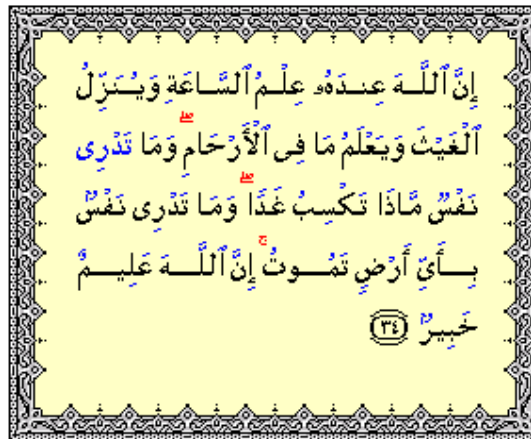 إِنَّ ٱللَّهَ عِندَهُۥ عِلْمُ ٱلسَّاعَةِ وَيُنَزِّلُ
ٱلْغَيْثَ وَيَعْلَمُ مَا فِى ٱلْأَرْحَامِ ۖ وَمَا تَدْرِى
نَفْسٌ مَّاذَا تَكْسِبُ غَدًا ۖ وَمَا تَدْرِى نَفْسٌۢ
بِأَىِّ أَرْضٍ تَمُوتُ ۚ إِنَّ ٱللَّهَ عَلِيمٌ
خَبِيرٌۢ ﴿٣٤﴾